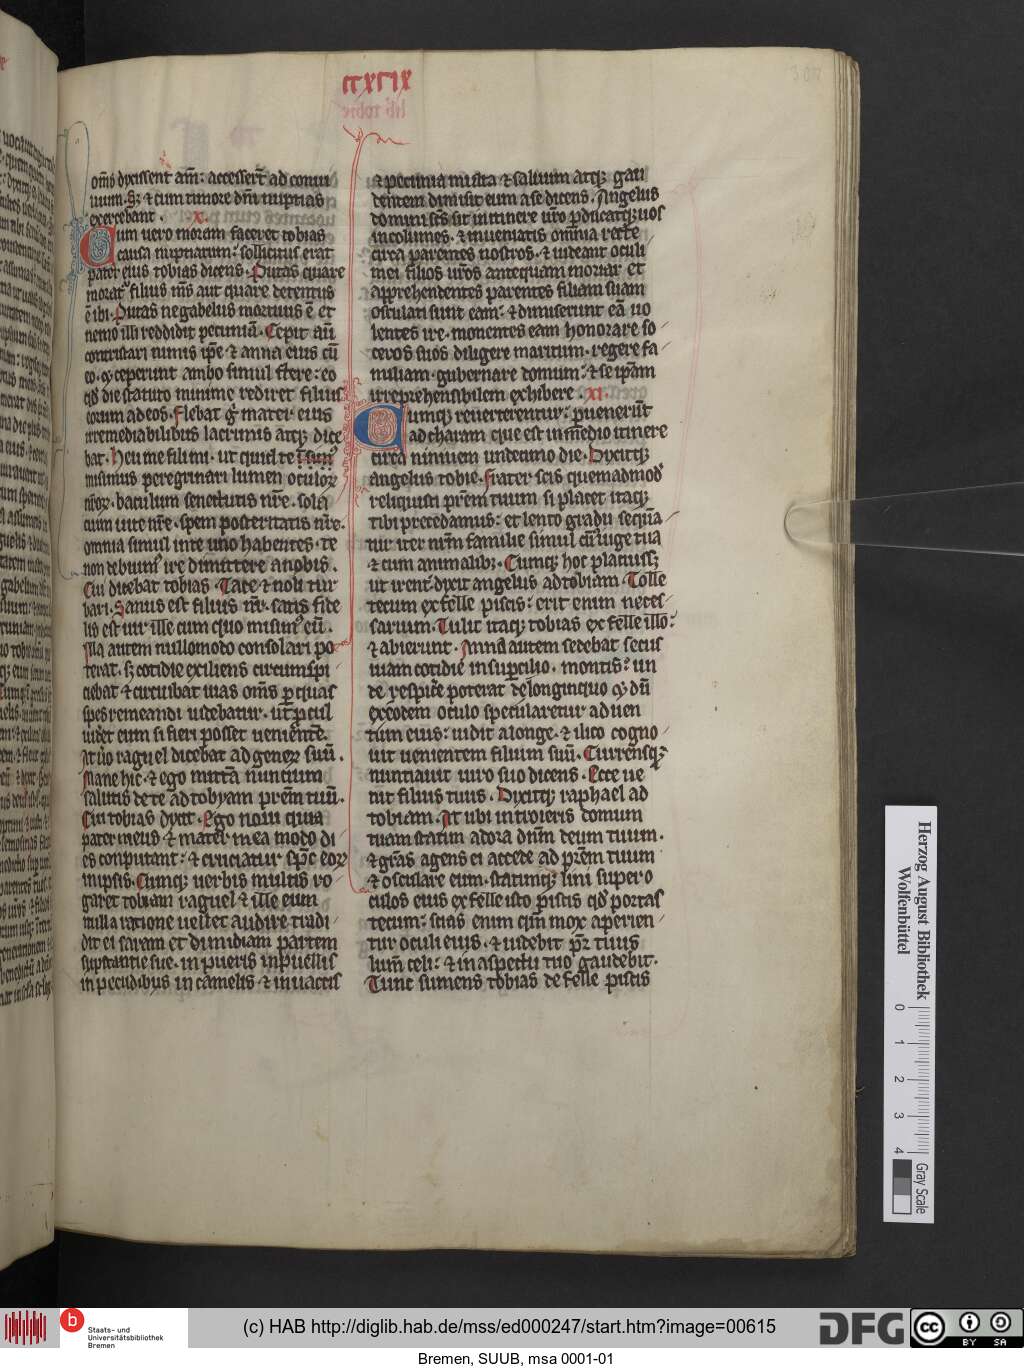 om̄s dyxissent am̄: accesseꝛt ad conui
uium. Sꝫ ⁊ cum timore dn̄i nuptias
exercebant. x.
Cum uero moram faceret tobias
causa nuptiarum: sollicitus erat
pater eius tobias dicens. Putas quare
moratꝰ filius m̄s aut quare detentus
ē ibi. Putas ne gabelus mortuus ē et
nemo illi reddidit pecuniā. Cepit aūt
contristari nimis ip̄e ⁊ anna eius cū
eo. qꝫ ceperunt ambo simul flere: eo
qđ die statuto minime rediret filius
eorum ad eos. Flebat g̊ mater eius
irremediabilibus lacrimis atqꝫ dice
bat. Heu me fili mi. ut quid te
misimus peregrinari lumen oculoꝝ
nr̄oꝝ. baculum senectutis nr̄e. sola
cium uite nr̄e. spem posteritatis nr̄e.
omnia simul in te uno habentes. te
non debuimꝰ ire dimittere a nobis.
Cui dicebat tobias. Tace ⁊ noli tur
bari. Sanus est filius nr̄. satis fide
lis est uir ille cum quo misimꝰ eū.
Illa autem nullomodo consolari po
terat. sꝫ cotidie exiliens circumspi
ciebat ⁊ circuibat uias om̄s ꝑ quas
spes remeandi uidebatur. ut ꝓcul
uidet eum si fieri posset uenientē.
At u̾o raguel dicebat ad generꝫ suū.
Mane hic. ⁊ ego mittā nuncium
salutis de te ad tobyam pr̄em tuū.
Cui tobias dyxit. Ego noui quia
pater meus ⁊ mater mea modo di
es conputant: ⁊ cruciatur sp̄c eoꝝ
in ipsis. Cumqꝫ uerbis multis ro
garet tobiam raguel ⁊ ille eum
nulla ratione uellet audire tradi
dit ei saram et dimidiam partem
substantie sue. in pueris in puellis
in pecudibus in camelis ⁊ in uaccis
cxcıxꝛ
⁊ pecunia multa ⁊ saluum atqꝫ gau
dentem dimisit eum a se dicens. Angelus
domini sc̄s sit in itinere ur̄o ꝑducatqꝫ uos
incolumes. ⁊ inueniatis omnia recte
circa parentes nostros. ⁊ uideant oculi
mei filios ur̄os antequam moriar et
apprehendentes parentes filiam suam
osculati sunt eam: ⁊ dimiserunt eā uo
lentes ire. monentes eam honorare so
ceros suos diligere maritum. regere fa
miliam. gubernare domum: ⁊ se ip̄am
irreprehensibilem exhibere. xi.
Cumqꝫ reuerterentur: ꝑuenerūt
ad charam que est in medio itinere
circa niniuem undecimo die. Dyxitqꝫ
angelus tobie. Frater scis quemadmođ
reliquisti pr̄em tuum si placet itaqꝫ
tibi precedamus: et lento gradu sequā
tur iter nr̄m familie simul cū ↄiuge tua
⁊ cum animalibꝫ. Cumqꝫ hoc placuissꝫ
ut irent: dyxit angelus ad tobiam. Tolle
tecum ex felle piscis: erit enim neces
sarium. Tulit itaqꝫ tobias ex felle illo:
⁊ abierunt. Anna autem sedebat secus
uiam cotidie in suꝑcilio. montis: un
de respicē poterat de longinquo qꝫ dū
ex eodem oculo specularetur ad uen
tum eius: uidit a longe. ⁊ ilico cogno
uit uenientem filium suū. Currensqꝫ
nuntiauit uiro suo dicens. Ecce ue
nit filius tuus. Dyxitqꝫ raphael ad
tobiam. At ubi introieris domum
tuam statim adora dn̄m deum tuum.
⁊ grās agens ei accede ad pr̄em tuum
⁊ osculare eum. statimqꝫ lini super o
culos eius ex felle isto piscis qđ portas
tecum: scias enim qm̄ mox aperien
tur oculi eius. ⁊ uidebit pr̄ tuus
lum̄ celi: ⁊ in aspectu tuo gaudebit.
Tunc sumens tobias de felle piscis
Herzog August Bibliothek
Wolfenbüttel
0
1
2
3
4
Gray Scale
b
Staats- und
Universitätsbibliothek
Bremen
(c) HAB http://diglib.hab.de/mss/ed000247/start.htm?image=00615
DFG
cc
BY SA
Bremen, SUUB, msa 0001-01